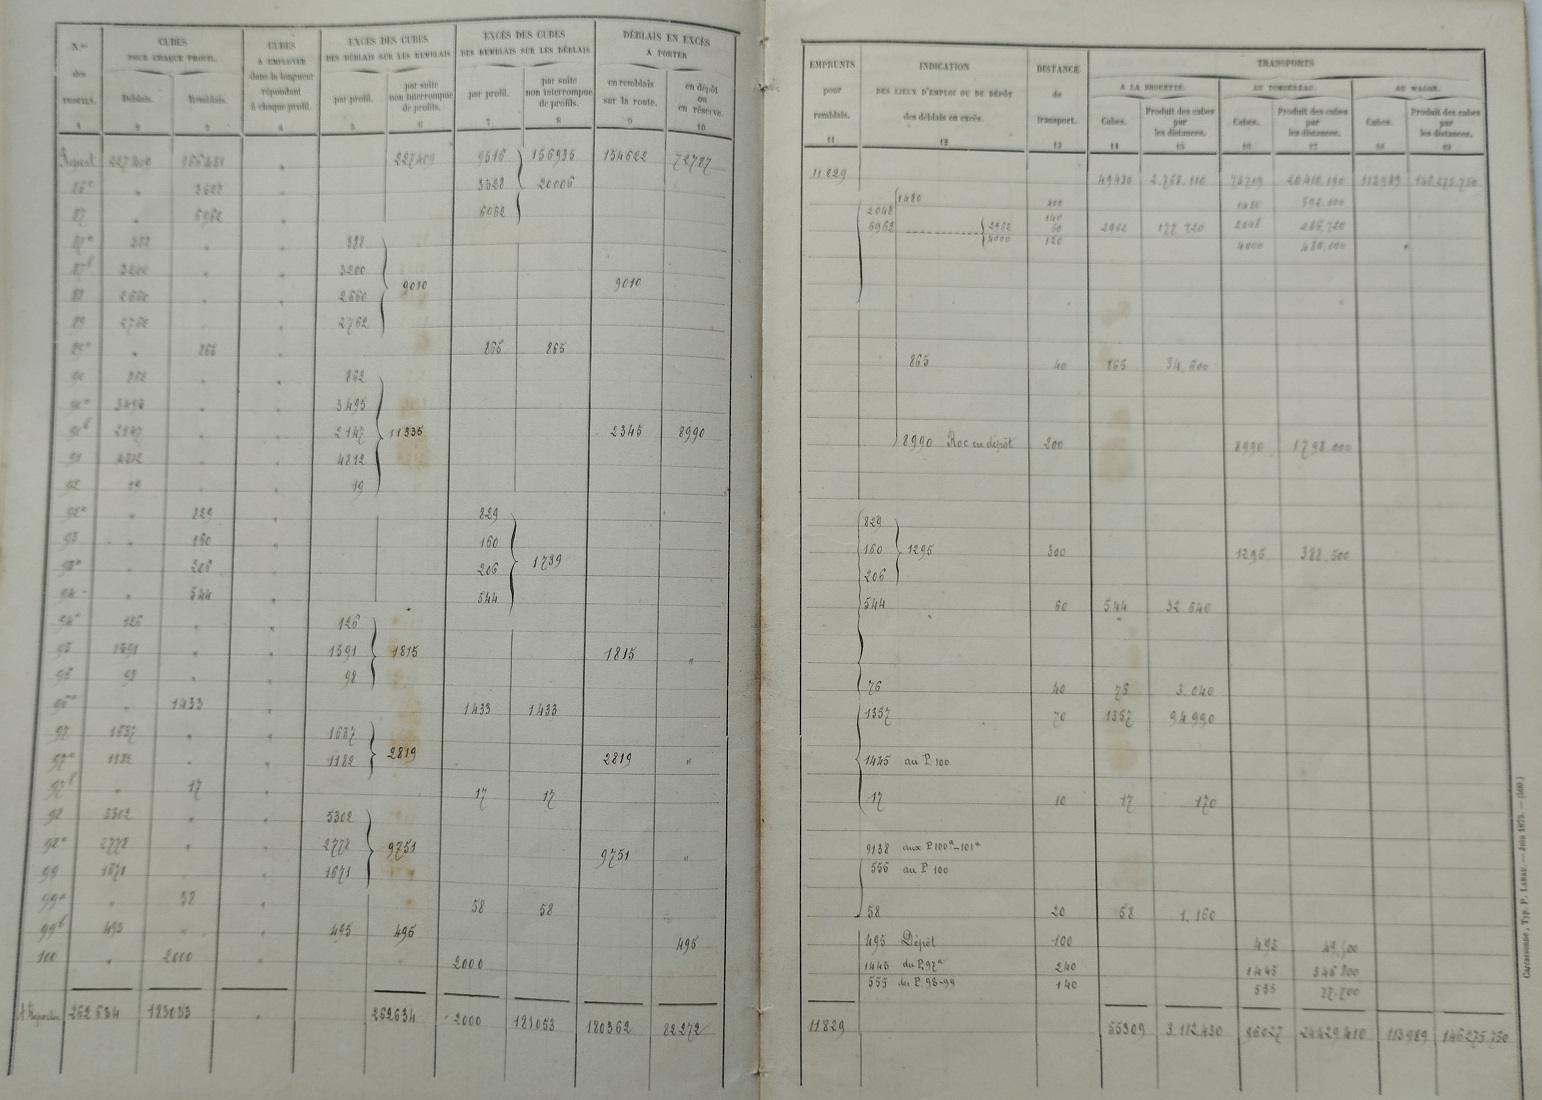 N.os des PROFILS.
CUBES POUR CHAQUE PROFIL.
Déblais. Remblais.
CUBES A EMPLOYER dans la longueur répondant à chaque profil.
EXCÈS DES CUBES DES DÉBLAIS SUR LES REMBLAIS
par profil. par suite non interrompue de profils.
EXCÈS DES CUBES DES REMBLAIS SUR LES DÉBLAIS
par profil. par suite non interrompue de profils.
DÉBLAIS EN EXCÈS A PORTER
en remblais sur la route. en dépôt ou en réserve.
1 2 3 4 5 6 7 8 9 10
Report 227409 " 227409 9516 156935 154622 72787
86a " 3528 " 3528 20006
87 " 6962 " 6962
388 " " 388
3200 " " 3200
88 2660 " " 2660 9010 9010
89 2762 " " 2762
89a " 865 " 865 865
90 862 " " 862
90a 3495 " " 3495
90b 2147 " " 2147 11335 2345 8990
91 4812 " " 4812
92 19 " " 19
92a " 829 829
93 " 160 160
93a " 206 206 1739
94 " 544 544
94a 126 " " 126
95 1591 " " 1591 1815 1815 "
96 98 " " 98
96a " 1433 " 1433 1433
97 1637 " " 1637
97a 1182 " " 1182 2819 2819 "
97b " 17 " 17 17
98 5302 " " 5302
98a 2778 " " 2778 9751 9751 "
99 1671 " " 1671
99a " 58 " 58 58
99b 495 " " 495 495 495
100 " 2000 2000
A Reporter 262634 183053 " 262634 2000 181053 180362 82272
EMPRUNTS pour remblais.
INDICATION DES LIEUX D'EMPLOI OU DE DÉPÔT des déblais en excès.
DISTANCE de transport.
TRANSPORTS
A LA BROUETTE. AU TOMBEREAU. AU WAGON.
Cubes. Produit des cubes par les distances. Cubes. Produit des cubes par les distances. Cubes. Produit des cubes par les distances.
11 12 13 14 15 16 17 18 19
11829 49430 2.768.110 20.410.190 113989 146.275.750
1480 400 1480 592.000
2048 140 2048 286.720
6962 2962 60 2962 177.720
4000 120 4000 480.000
865 40 865 34.600
8990 Roc en dépôt 200 8990 1.798.000
829
160 1295 300 1295 388.500
206
544 60 544 32.640
76 40 76 3.040
1357 70 1357 94.990
1445 au P. 100
17 10 17 170
9138 aux P. 100a-101a
555 au P. 100
58 20 58 1.160
495 Dépôt 100 495 49.500
1445 du P. 97a 240 1445 346.800
555 du P. 98-99 140 555 77.700
11829 55309 3.112.430 96027 24.429.410 113989 146.275.750
Carcassonne, Typ. P. LABAU. — Juin 1875. — (500.)